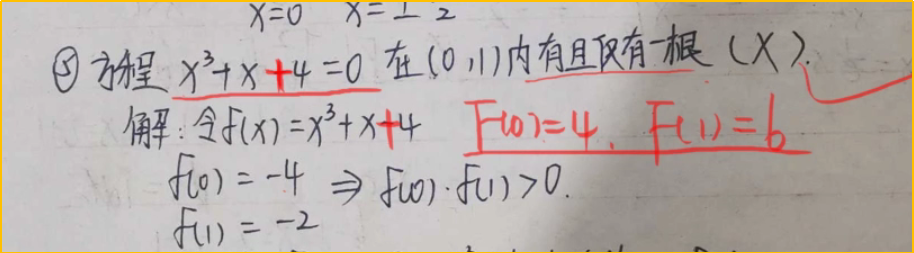 x=0 x=±2
③ 方程 x³+x+4=0 在(0,1)内有且仅有一根 (×).
解:令f(x)=x³+x+4 F(0)=4, F(1)=6
f(0)=-4 ⇒ f(0)·f(1)>0.
f(1)=-2